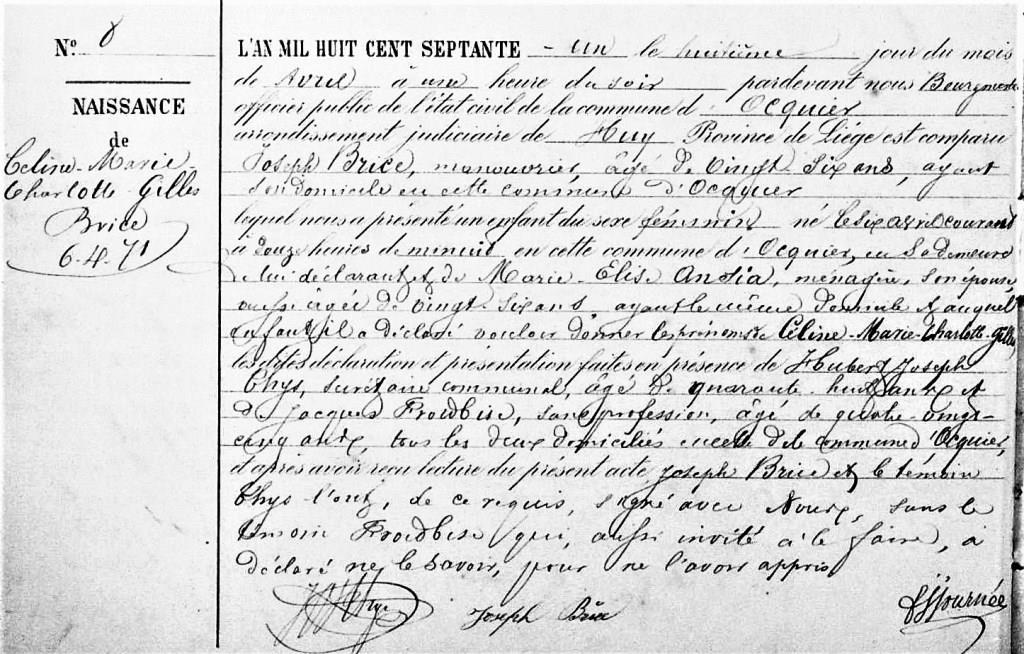 N° 8
NAISSANCE
de
Celine-Marie
Charlotte-Gilles
Brice
6.4.71
L'AN MIL HUIT CENT SEPTANTE - un le huitième jour du mois
de Avril à une heure du soir pardevant nous Bourgmestre
officier public de l'état civil de la commune d'Ocquier
arrondissement judiciaire de Huy Province de Liége est comparu
Joseph Brice, manouvrier, âgé de vingt six ans, ayant
son domicile en cette commune d'Ocquier
lequel nous a présenté un enfant du sexe féminin né le six avril courant
à douze heures de minuit en cette commune d'Ocquier, en sa demeure
de lui déclarant et de Marie-Elise Ansia, ménagère, son épouse,
aussi âgée de vingt-six ans, ayant le même domicile & auquel
enfant il a déclaré vouloir donner les prénoms de Céline-Marie-Charlotte-Gilles
les dites déclaration et présentation faites en présence de Hubert Joseph
Thys, secrétaire communal, âgé de quarante-huit ans et
de Jacques Froidbise, sans profession, âgé de quatre-vingt-
cinq ans, tous les deux domiciliés en celle dite commune d'Ocquier,
et après avoir reçu lecture du présent acte Joseph Brice et le témoin
Thys l'ont, de ce requis, signé avec Nous, sans le
témoin Froidbise qui, aussi invité à le faire, a
déclaré ne le savoir, pour ne l'avoir appris
HJThys
Joseph Brice
Journée